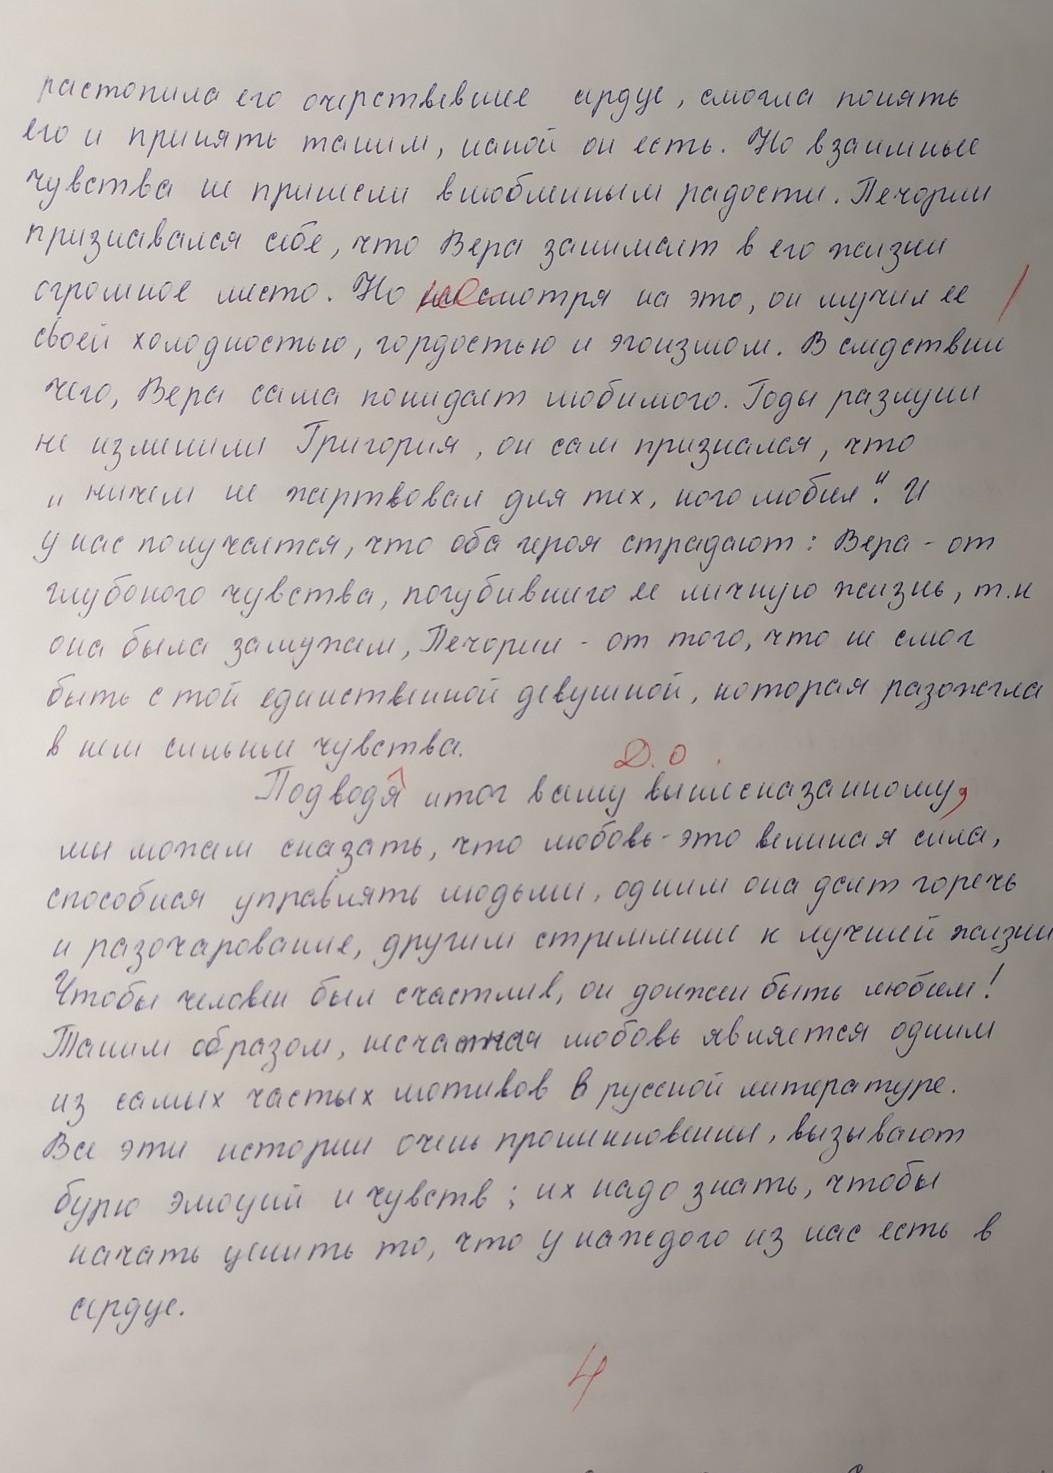 растопила его очерствевшее сердце, смогла понять
его и принять таким, какой он есть. Но взаимные
чувства не принесли влюбленным радости. Печорин
признавался себе, что Вера занимает в его жизни
огромное место. Но несмотря на это, он мучил ее
своей холодностью, гордостью и эгоизмом. В следствии
чего, Вера сама покидает любимого. Годы разлуки
не изменили Григория, он сам признался, что
„ничем не жертвовал для тех, кого любил“. И
у нас получается, что оба героя страдают: Вера - от
глубокого чувства, погубившего ее личную жизнь, т.к
она была замужем, Печорин - от того, что не смог
быть с той единственной девушкой, которая разожгла
в нем сильные чувства.
Д.О.
Подводя итог всему вышесказанному,
мы можем сказать, что любовь - это великая сила,
способная управлять людьми, одним она дает горечь
и разочарование, другим стремление к лучшей жизни
Чтобы человек был счастлив, он должен быть любим!
Таким образом, несчастная любовь является одним
из самых частых мотивов в русской литературе.
Все эти истории очень проникновенны, вызывают
бурю эмоций и чувств; их надо знать, чтобы
начать ценить то, что у каждого из нас есть в
сердце.
4